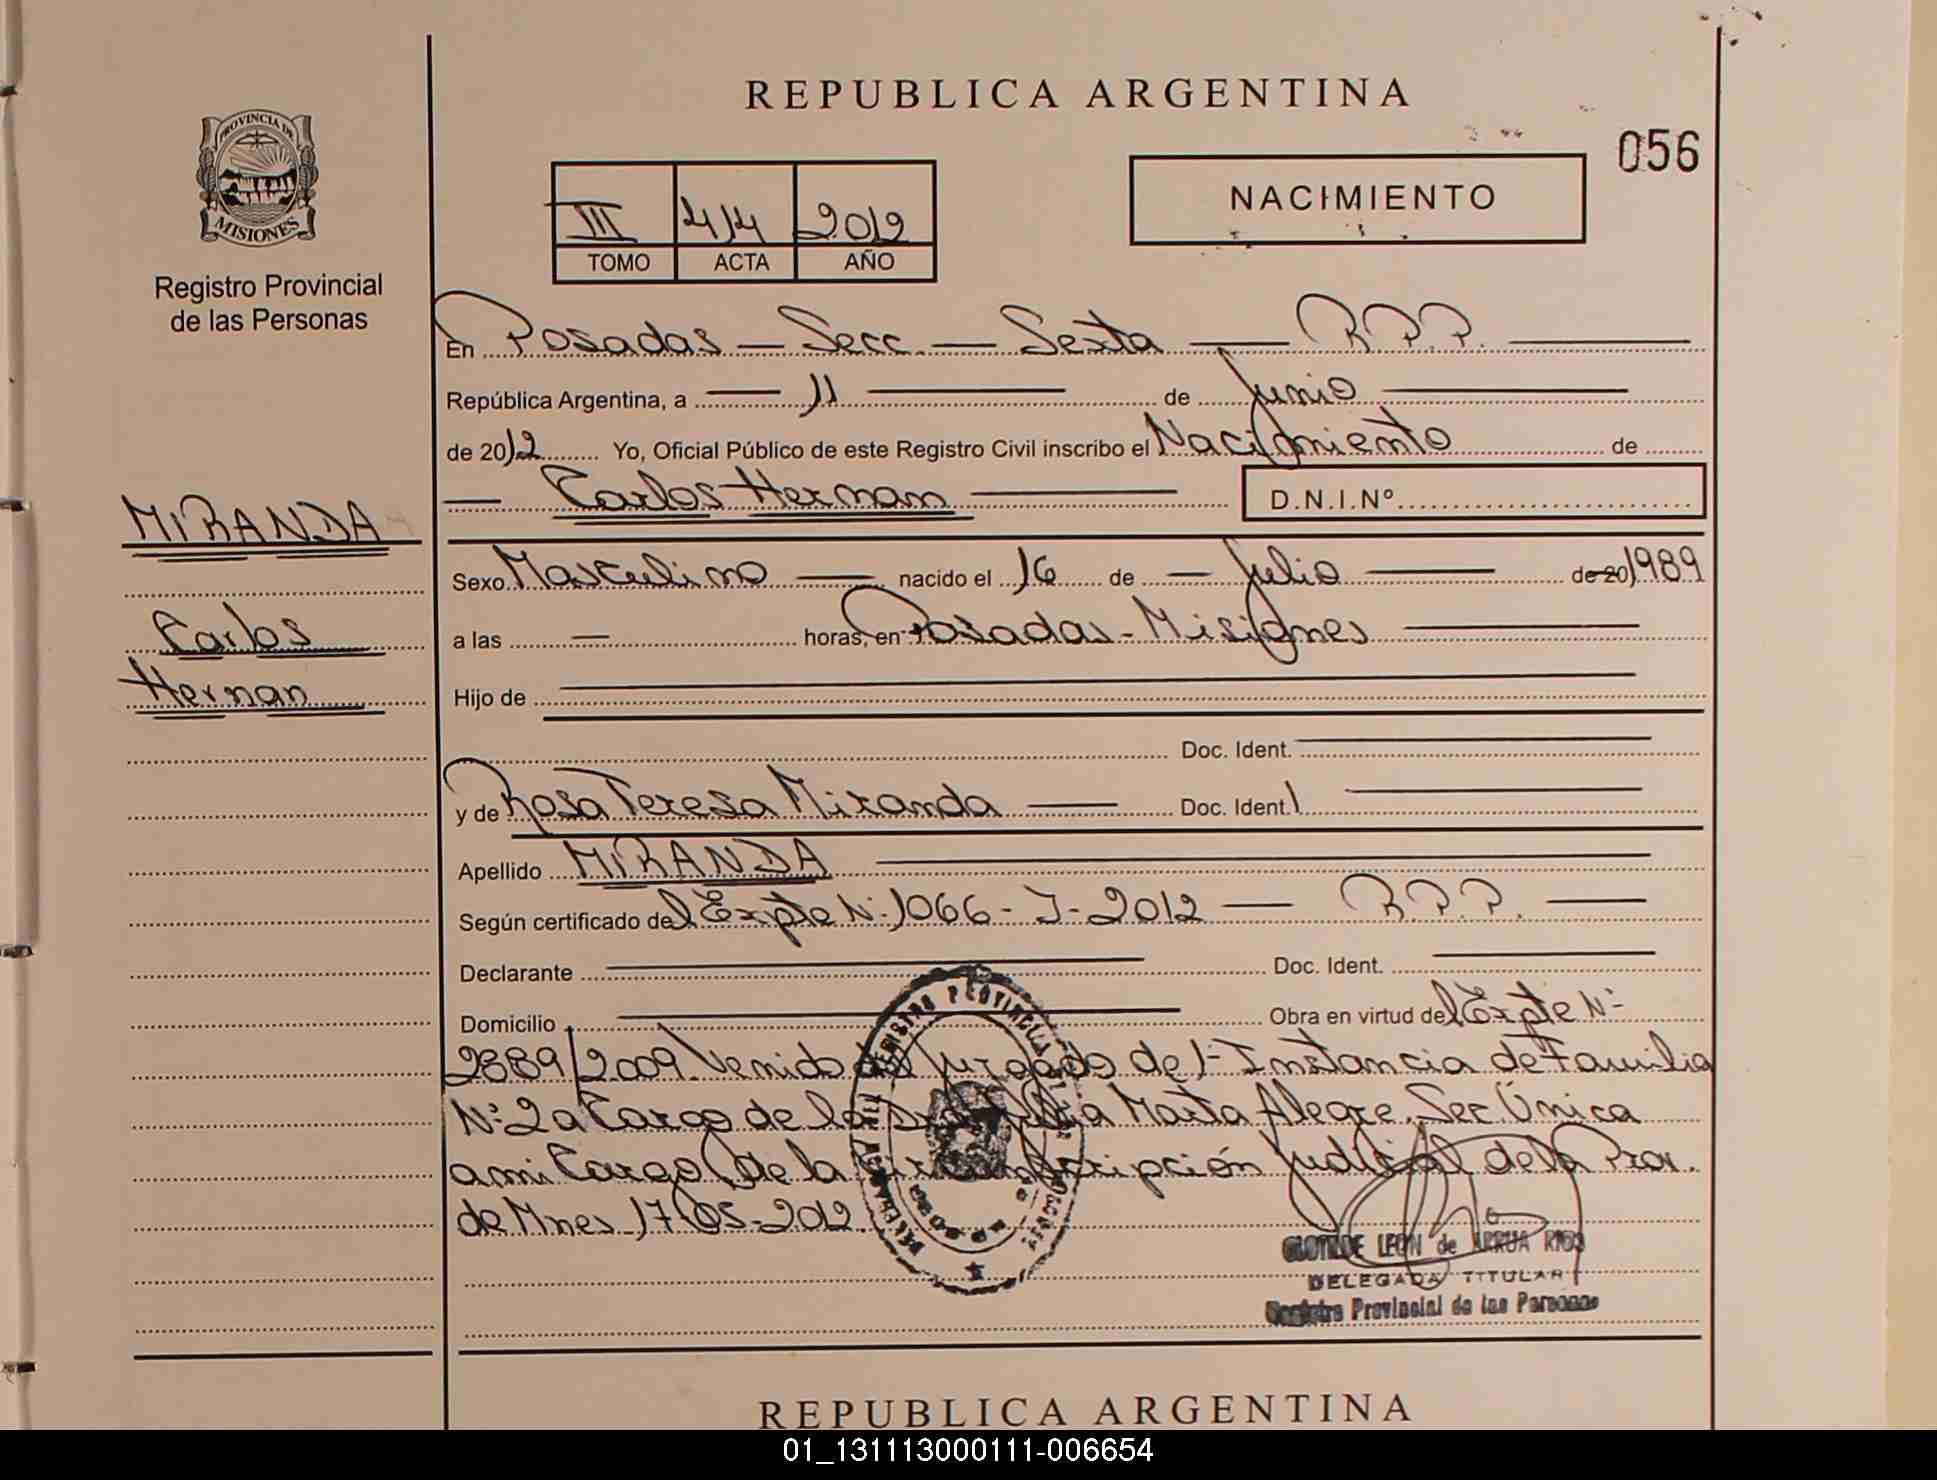 REPUBLICA ARGENTINA
056
PROVINCIA DE
MISIONES
Registro Provincial
de las Personas
III 414 2012
TOMO ACTA AÑO
NACIMIENTO
En Posadas — Secc. — Sexta — R.P.P. —
República Argentina, a — 11 — de Junio —
de 2012 Yo, Oficial Público de este Registro Civil inscribo el Nacimiento de
— Carlos Hernan — D.N.I.Nº
MIRANDA
Carlos
Hernan
Sexo Masculino — nacido el 16 de — Julio — de 20 1989
a las — horas, en Posadas - Misiones —
Hijo de —
Doc. Ident. —
y de Rosa Teresa Miranda — Doc. Ident. —
Apellido MIRANDA —
Según certificado del Expte Nº 1066 - J - 2012 — R.P.P. —
Declarante — Doc. Ident. —
Domicilio — Obra en virtud del Expte Nº
2889/2009. Venido del Juzgado de 1º Instancia de Familia
Nº 2 a Cargo de la Dra Marta Alegre, Sec. Única
a mi Cargo, De la Circunscripción Judicial de la Prov.
de Mnes. 17-05-2012.
REGISTRO PROVINCIAL DE LAS
CLOTILDE LEON de ARRUA RIOS
DELEGADA TITULAR
Registro Provincial de las Personas
REPUBLICA ARGENTINA
01_131113000111-006654